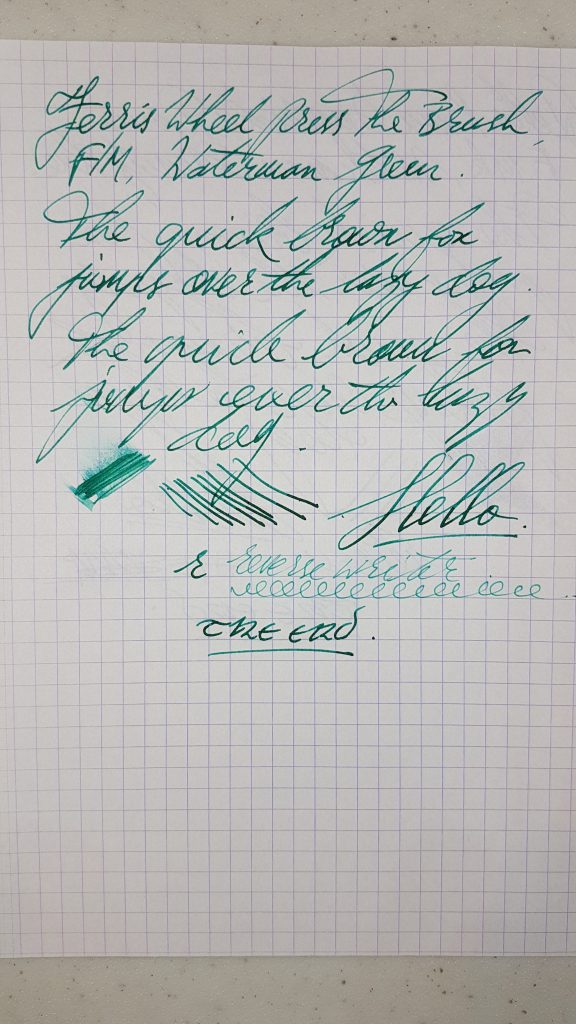 Ferris Wheel Press The Brush,
F/M, Waterman Green.
The quick brown fox
jumps over the lazy dog.
The quick brown fox
jumps over the lazy
dog.
Hello.
r reverse writer
THE END.